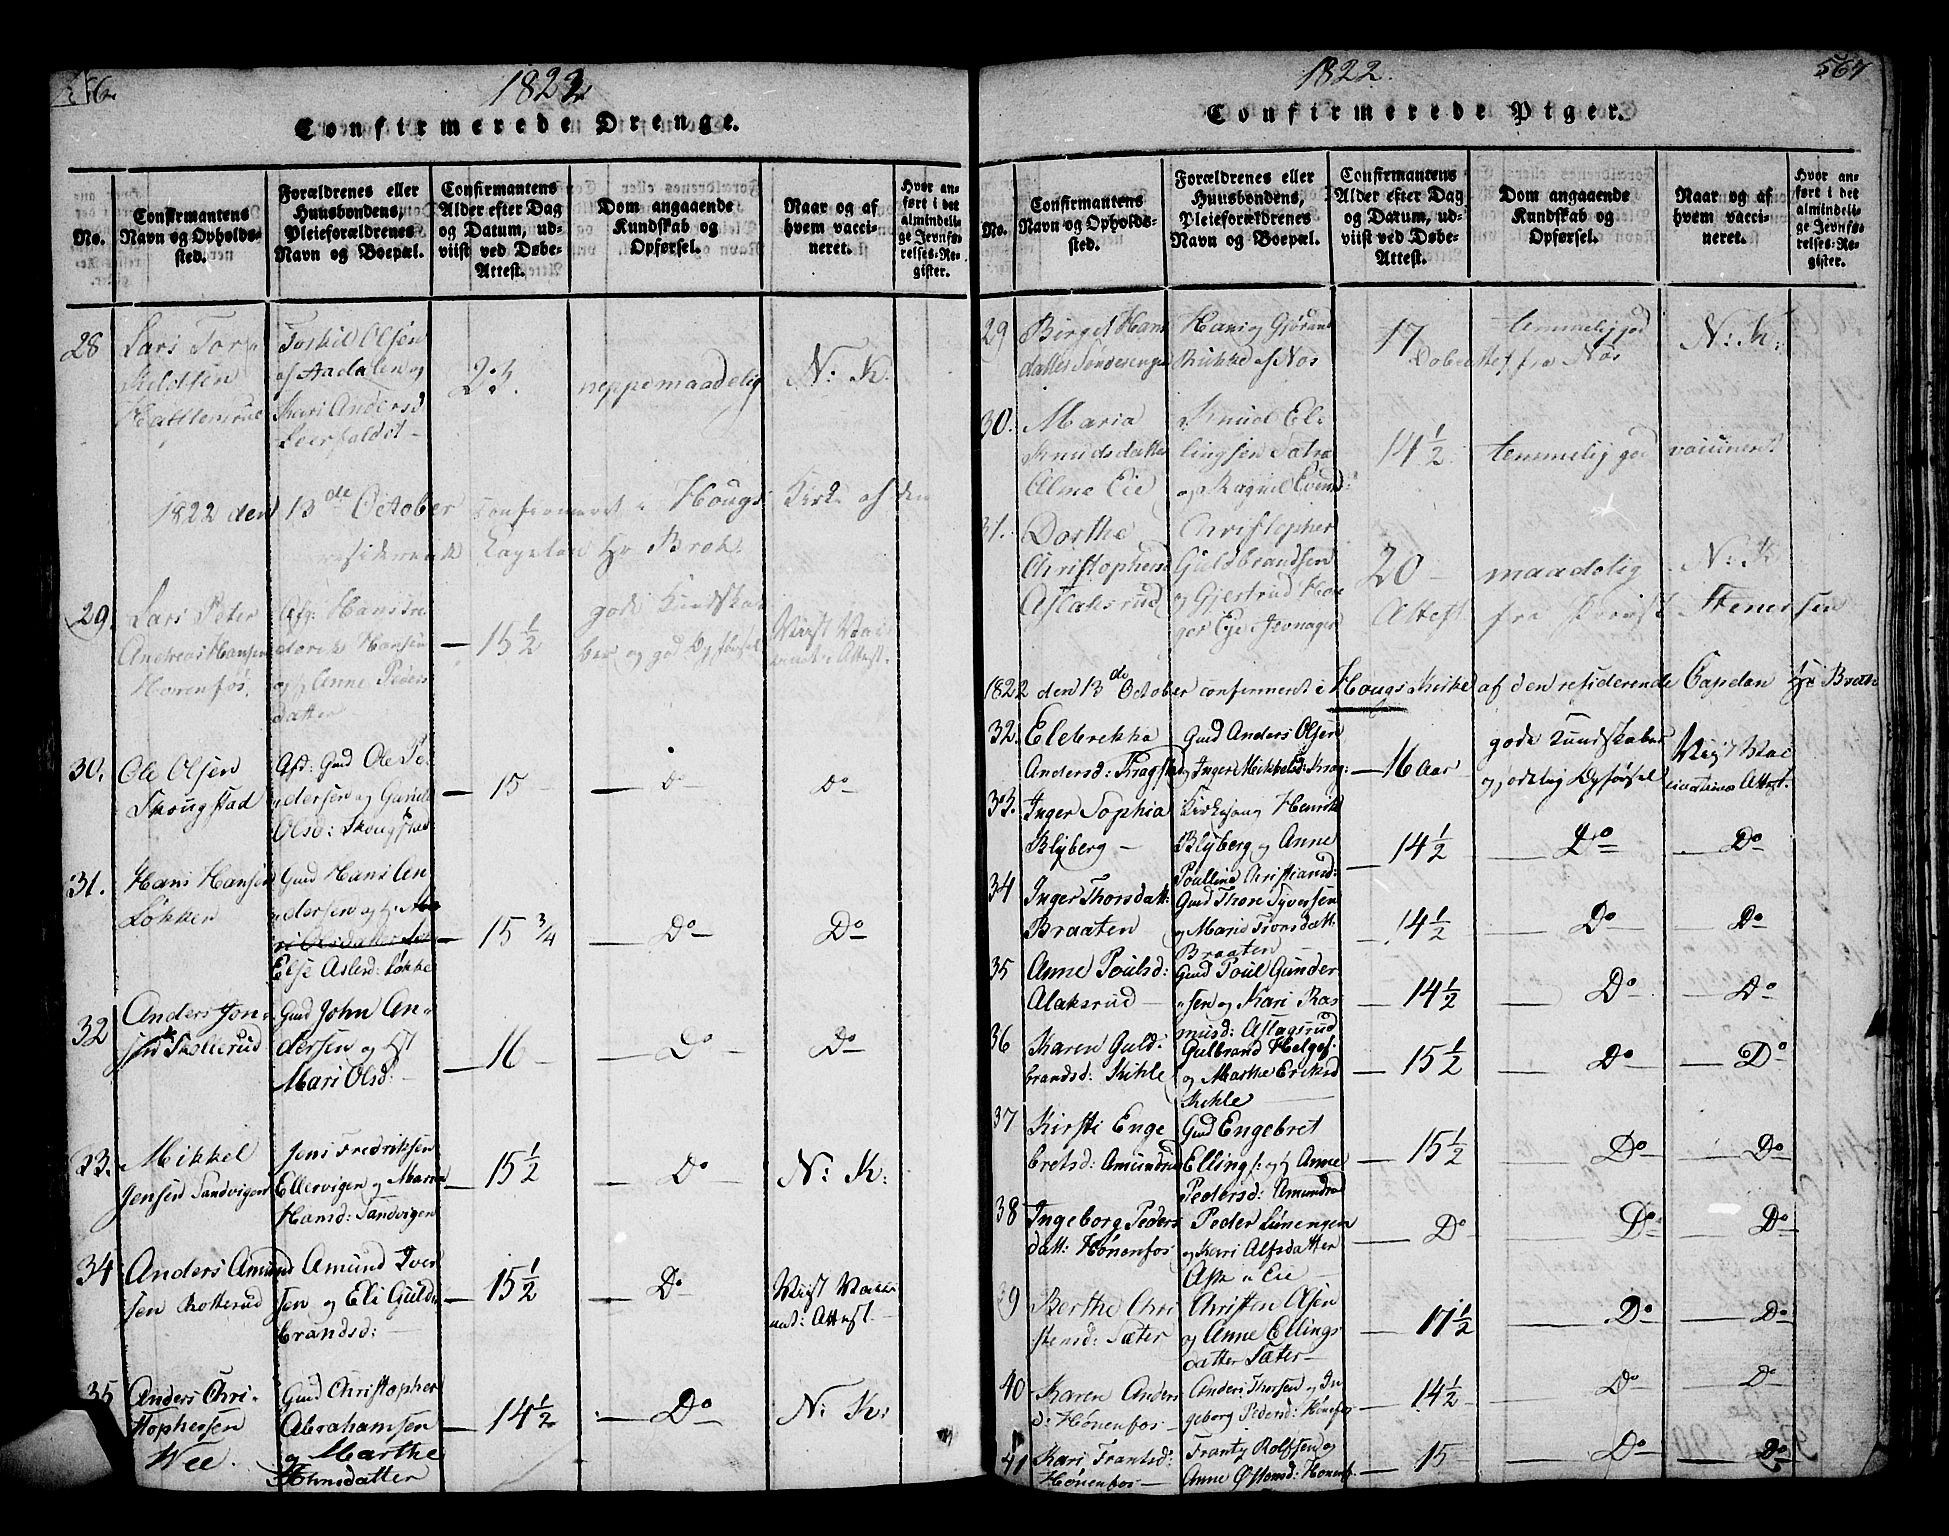 566
1822
Confirmerede Drenge.
No.
Confirmantens
Navn og Opholds-
sted.
Forældrenes eller
Huusbondens,
Pleieforældrenes
Navn og Boepæl.
Confirmantens
Alder efter Dag
og Datum, ud-
viist ved Døbe-
Attest.
Dom angaaende
Kundskab og
Opførsel.
Naar og af
hvem vacci-
neret.
Hvor an-
ført i det
almindeli-
ge Jevnfø-
relses-Re-
gister.
28
Lars Tor-
kildsen
Hattemrud
Torkil Olsen
af Aadalen og
Kari Andersd
Leerfaldet
23.
neppe maadelig
N: K.
1822 den 13de October confirmeret i Hougs Kirke af den
residerende Capelan Hr Brok.
29.
Lars Peter
Andreas Hansen
Honenfos.
Afg: Hans Fre
derik Hansen
og Anne Peders
datter
15 1/2
gode Kundska
ber og god Opførsel
Viist Vacc
Attest.
30.
Ole Olsen
Skougstad
Afd: Gmd Ole Pe-
dersen og
Olsd: Skougstad
15
do
do
31.
Hans Hansen
Løkken
Gmd Hans An
dersen og
Else Aslesd: Løkke
15 3/4
Do
Do
32
Anders Jon-
sen Skollerud
Gmd John An-
dersen og
Mari Olsd:
16
Do
Do
33.
Mikkel
Jensen Sandvigen
Jens Fredriksen
Ellervigen og Maren
Hansd: Sandvigen
15 1/2
Do
N: K:
34
Anders Amund
sen Rotterud
Amund Iver
sen og Eli Guld
brandsd:
15 1/2
Do
Viist Vacci
nat: Attest.
35
Anders Chri-
stophersen
Wee.
Gmd Christopher
Abrahamsen
og Marthe
Hansdatter
14 1/2
Do
N: K:
567
1822.
Confirmerede Piger.
No.
Confirmantens
Navn og Opholds-
sted.
Forældrenes eller
Huusbondens,
Pleieforældrenes
Navn og Boepæl.
Confirmantens
Alder efter Dag
og Datum, ud-
viist ved Døbe-
Attest.
Dom angaaende
Kundskab og
Opførsel.
Naar og af
hvem vacci-
neret.
Hvor an-
ført i det
almindeli-
ge Jevnfø-
relses-Re-
gister.
29
Birget Hans
datter Sonderengen
Hans og Gjørand
Bukke af Næs
17
temmelig god
Dobeattest fra Næs
N: K:
30.
Maria
Knudsdatter
Alme Eie
Knud El-
lingsen
og Ragnil
14 1/2
temmelig god
vaccineret
31.
Dorthe
Christophersd
Aslaksrud
Christopher
Guldbrandsen
og Gjertrud
Eje Jevnager
20
maadelig
N: K
Attest fra Provst Stenersen
1822 den 13de October confirmeret i Hougs Kirke af den residerende Capelan Hr Brock
32.
Elebrekka
Andersd: Kragstad
Gmd Anders Olsen
og Inger Mikkelsd: Krag:
16 Aar
gode Kundskaber
og ordelig Opførsel
Viist Vac
cinations Attest.
33.
Inger Sophia
Blyberg
Kirkesang Henrik
Blyberg og Anne
Poulline Christiansd:
14 1/2
Do
Do
34
Inger Thorsdatt:
Braaten
Gmd Thore Syversen
og Marie Tronsdatt
Braaten
14 1/2
Do
Do
35
Anne Poulsd:
Alaksrud
Gmd Poul Gunder
sen og Kari Ras
musd: Aslagsrud
14 1/2
Do
Do
36
Karen Guld-
brandsd: Kihle
Gulbrand Helges:
og Marthe Eriksd
Kihle
15 1/2
Do
Do
37
Kirsti Enge
bretsd: Amundrud
Gmd Engebret
Ellings: og Anne
Pedersd: Amundrud
15 1/2
Do
Do
38
Ingeborg Peders
datt: Hønenfos
Peder Linnengen
og Kari Alfsdatter
Ask Eie
Do
Do
Do
39
Berthe Chri
stensd: Sæter
Christen Asen
og Anne Ellings
datter Sæter
17 1/2
Do
Do
40
Karen Anders
d: Hønenfos
Anders Thorsen og In
geborg Pedersd: Hønefos
14 1/2
Do
Do
41
Kari Frantsd:
Hønenfos
Frantz Rolfsen og
Anne Østensd: Hønenf.
15
Do
Do